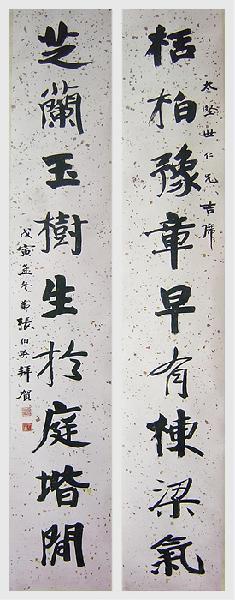 世仁兄吉席
栝柏豫章早有棟梁氣
芝蘭玉樹生於庭堦間
戊寅孟冬弟張伯英拜賀